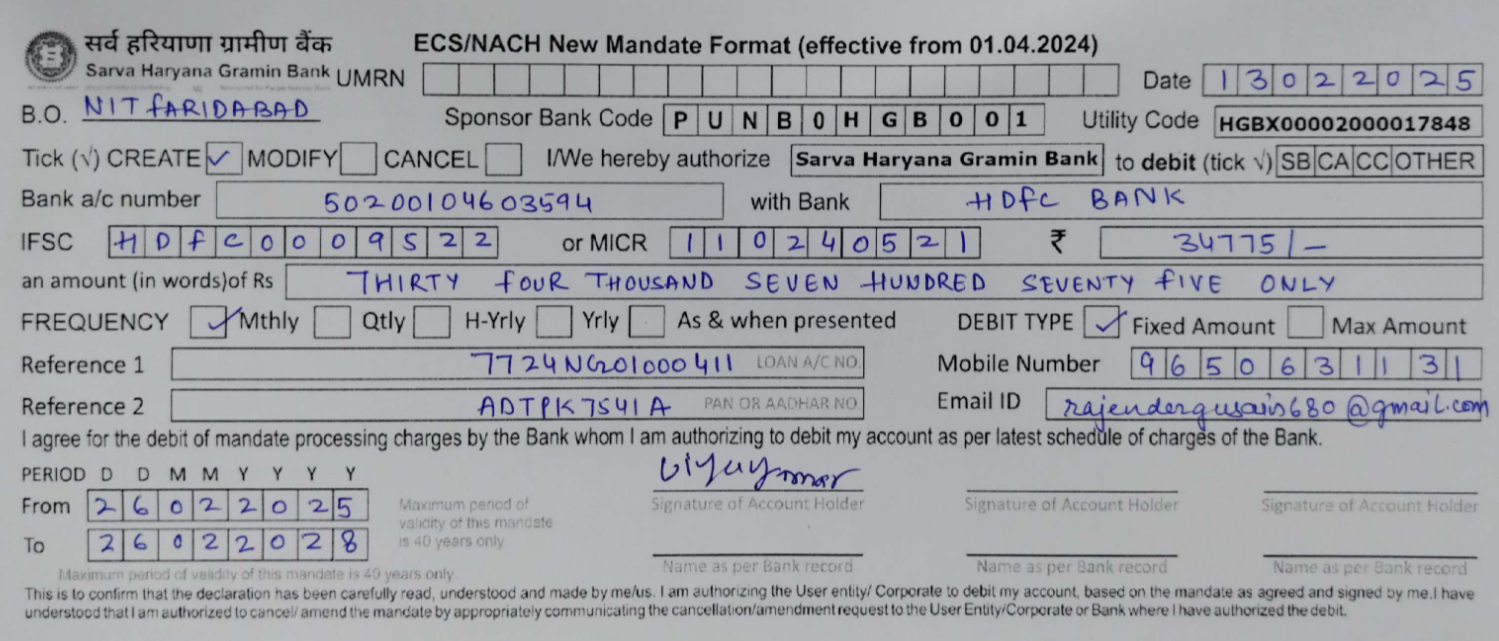 सर्व हरियाणा ग्रामीण बैंक ECS/NACH New Mandate Format (effective from 01.04.2024)
Sarva Haryana Gramin Bank UMRN Date 13022025
B.O. NIT FARIDABAD Sponsor Bank Code PUNB0HGB001 Utility Code HGBX00002000017848
Tick (√) CREATE ✓ MODIFY CANCEL I/We hereby authorize Sarva Haryana Gramin Bank to debit (tick √) SB CA CC OTHER
Bank a/c number 50200104603594 with Bank HDFC BANK
IFSC HDFC0009522 or MICR 110240521 ₹ 34775/-
an amount (in words)of Rs THIRTY FOUR THOUSAND SEVEN HUNDRED SEVENTY FIVE ONLY
FREQUENCY ✓ Mthly Qtly H-Yrly Yrly As & when presented DEBIT TYPE ✓ Fixed Amount Max Amount
Reference 1 7724NG01000411 LOAN A/C NO. Mobile Number 9650631131
Reference 2 ADTPK7541A PAN OR AADHAR NO Email ID rajendergusain680@gmail.com
I agree for the debit of mandate processing charges by the Bank whom I am authorizing to debit my account as per latest schedule of charges of the Bank.
PERIOD D D M M Y Y Y Y
From 26022025 Maximum period of validity of this mandate is 40 years only Signature of Account Holder Signature of Account Holder Signature of Account Holder
To 26022028
Maximum period of validity of this mandate is 40 years only Name as per Bank record Name as per Bank record Name as per Bank record
This is to confirm that the declaration has been carefully read, understood and made by me/us. I am authorizing the User entity/ Corporate to debit my account, based on the mandate as agreed and signed by me.I have
understood that I am authorized to cancel/ amend the mandate by appropriately communicating the cancellation/amendment request to the User Entity/Corporate or Bank where I have authorized the debit.